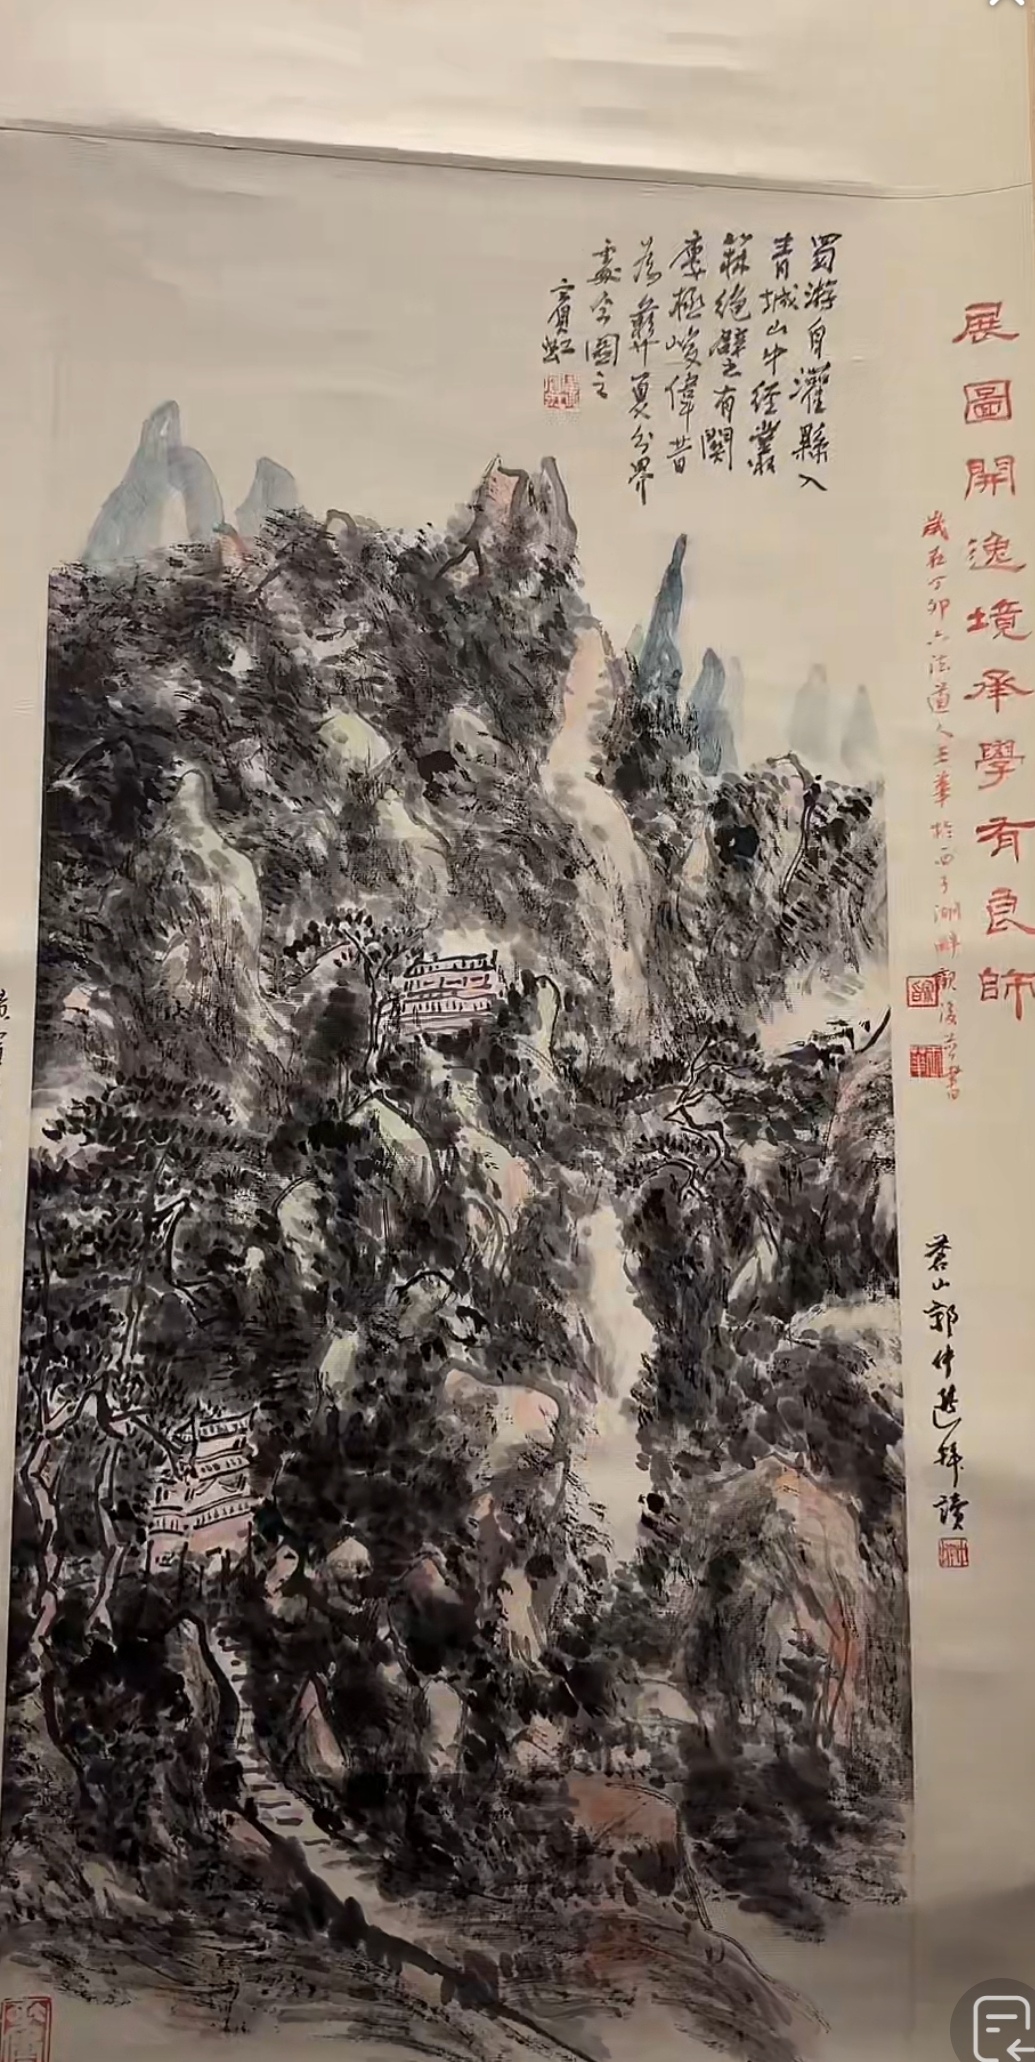 蜀游自灌縣入
青城山中經叢
箖絶壁之有關
廔極峻偉昔
為彝夏分界
處今圖之
賓虹
展圖開逸境承學有良師
歲在丁卯六法道人王華於西子湖畔觀後並書
蒼山郭仲選拜讀